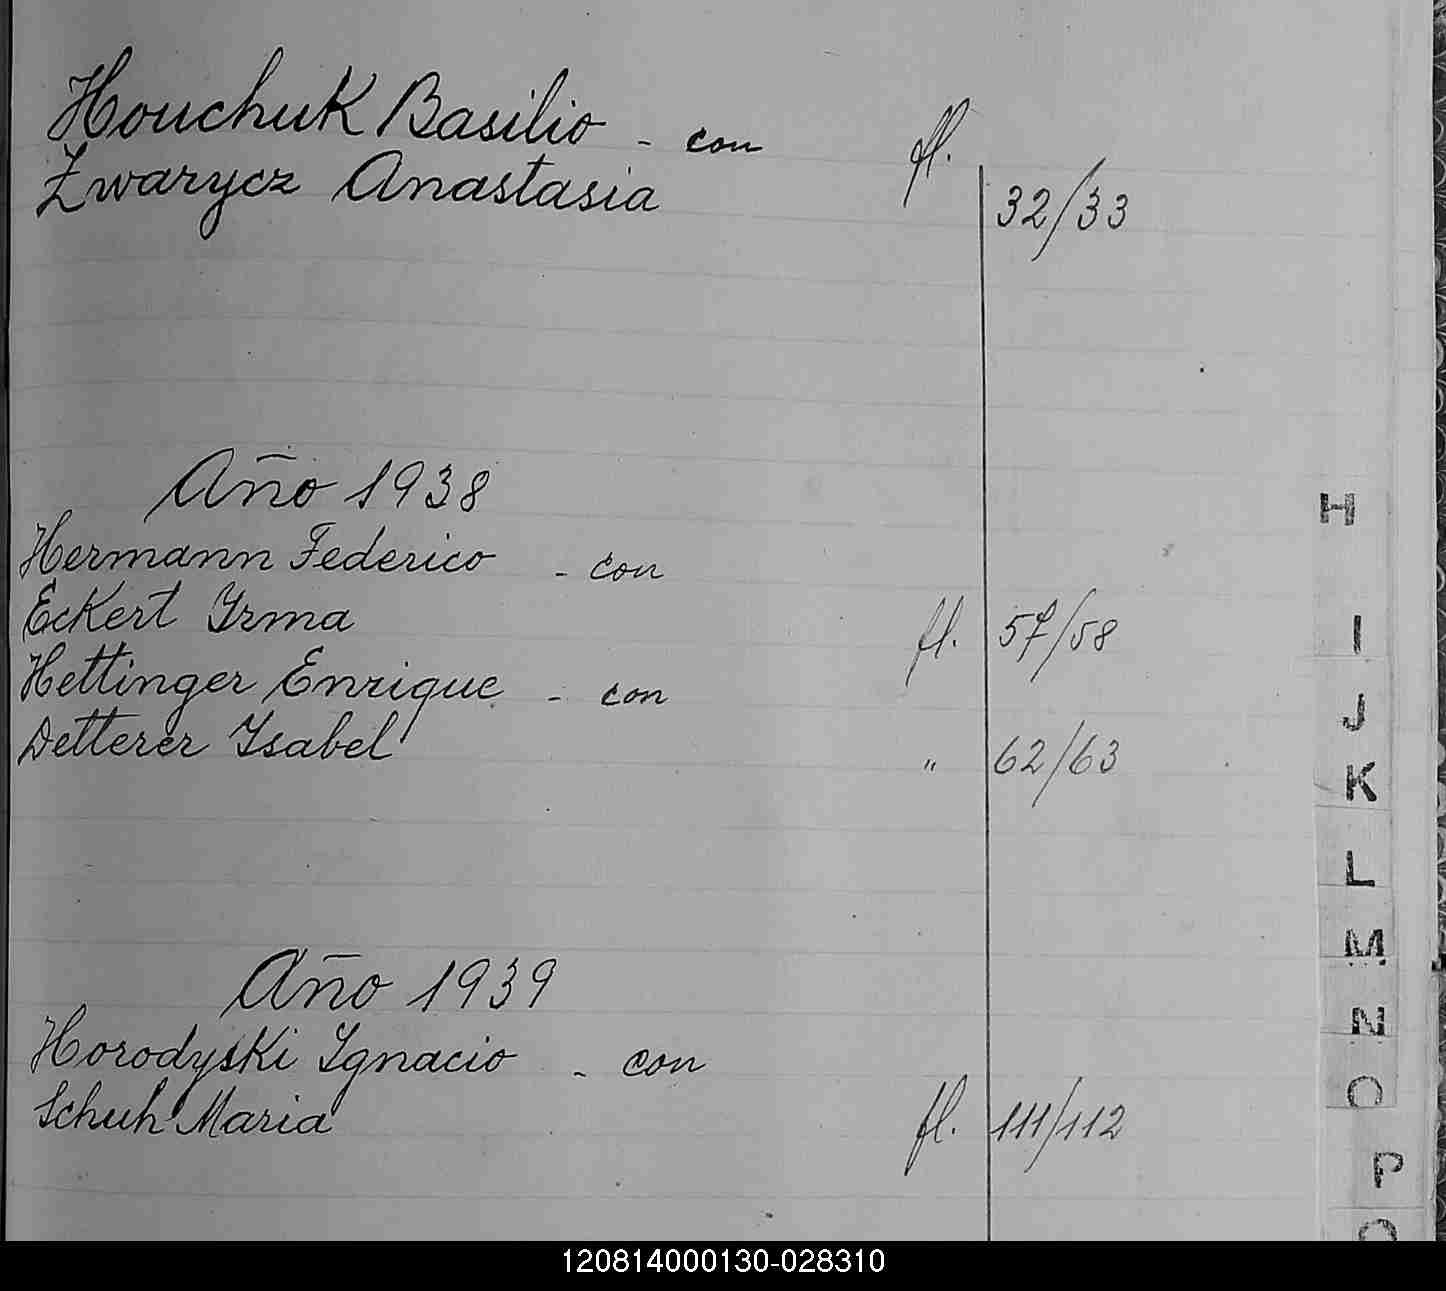 Houchuk Basilio - con fl.
Zwarycz Anastasia 32/33
Año 1938
Hermann Federico - con
Eckert Yrma fl. 57/58
Hettinger Enrique - con
Detterer Ysabel " 62/63
Año 1939
Horodyski Ygnacio - con
Schuh Maria fl. 111/112
H
I
J
K
L
M
N
O
P
Q
120814000130-028310